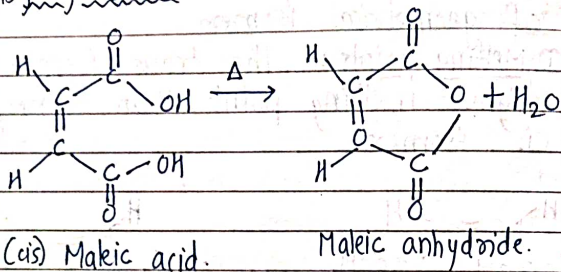 O O
‖ ‖
H C Δ H C
C OH → C O + H₂O
‖ ‖
C OH O
H C H C
‖ ‖
O O
(cis) Maleic acid. Maleic anhydride.